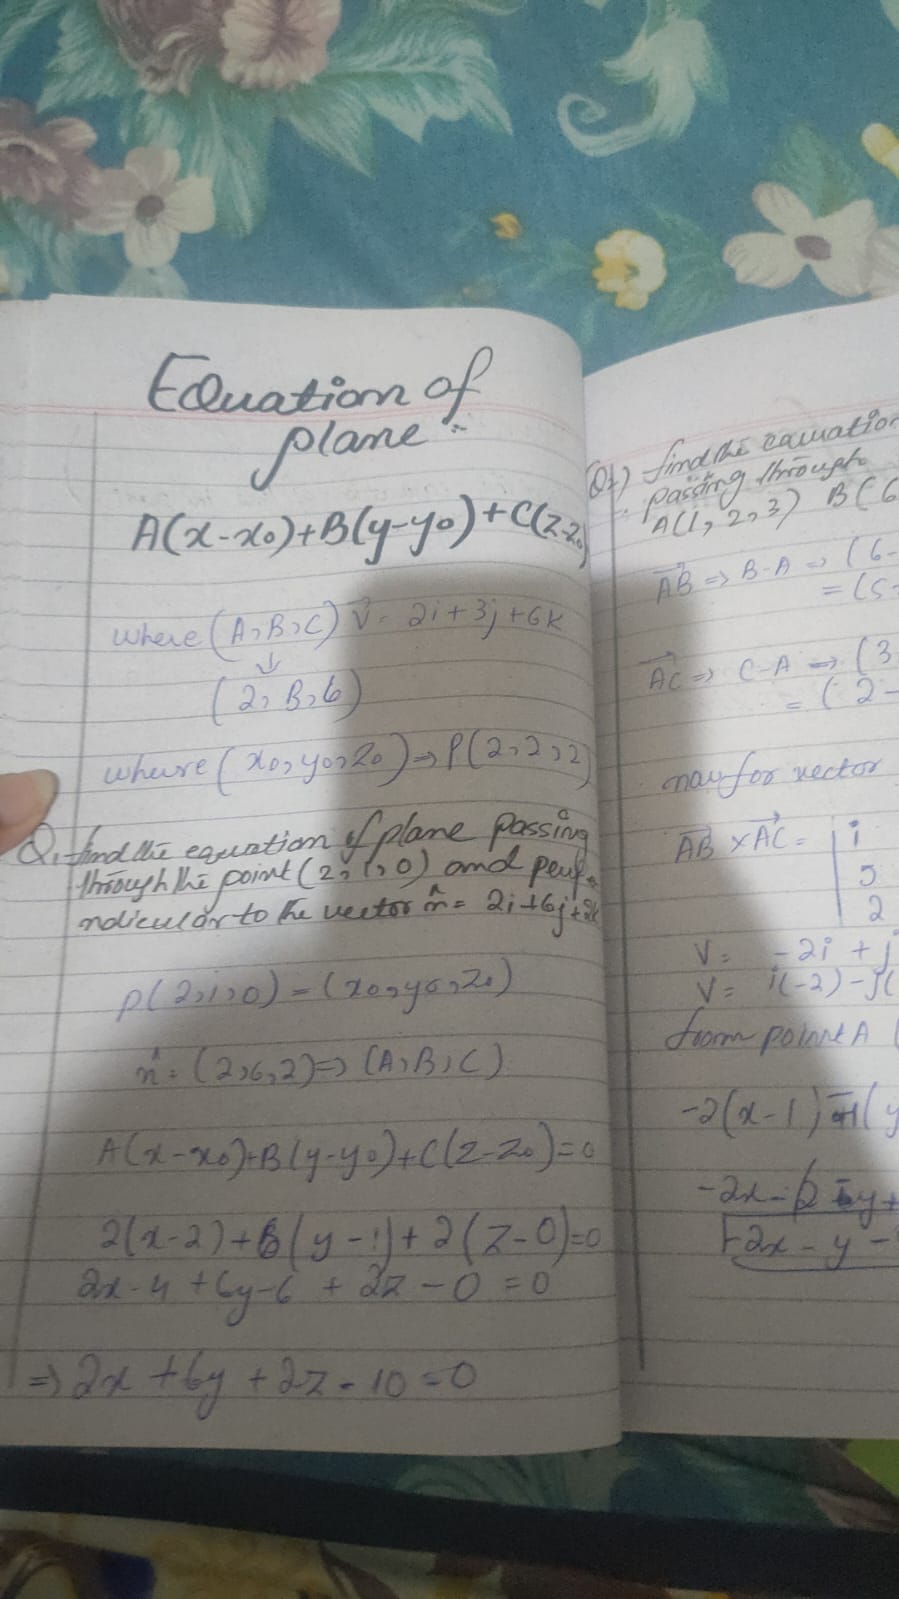 Equation of
plane :-
A(x-x₀)+B(y-y₀)+C(z-z₀
where (A,B,C) V⃗ = 2i+3j+6k
↓
(2,B,6)
where (x₀,y₀,z₀)→P(2,2,2
Q. find the equation of plane passing
through the point (2,1,0) and perpe
ndicular to the vector n̂ = 2i+6j+2k
P(2,1,0) = (x₀,y₀,z₀)
n̂ = (2,6,2)⇒(A,B,C)
A(x-x₀)+B(y-y₀)+C(z-z₀)=0
2(x-2)+6(y-1)+2(z-0)=0
2x-4+6y-6+2z-0=0
⇒ 2x+6y+2z-10=0
find the equation
passing through
A(1,2,3) B(6
AB⃗ ⇒ B-A ⇒ (6-
= (5-
AC⃗ ⇒ C-A ⇒ (3
= (2-
now for vector
AB⃗ × AC⃗ = | i
5
2
V = -2i + j
V = i(-2) - j(
from point A (
-2(x-1)
-2x-
-2x-y-